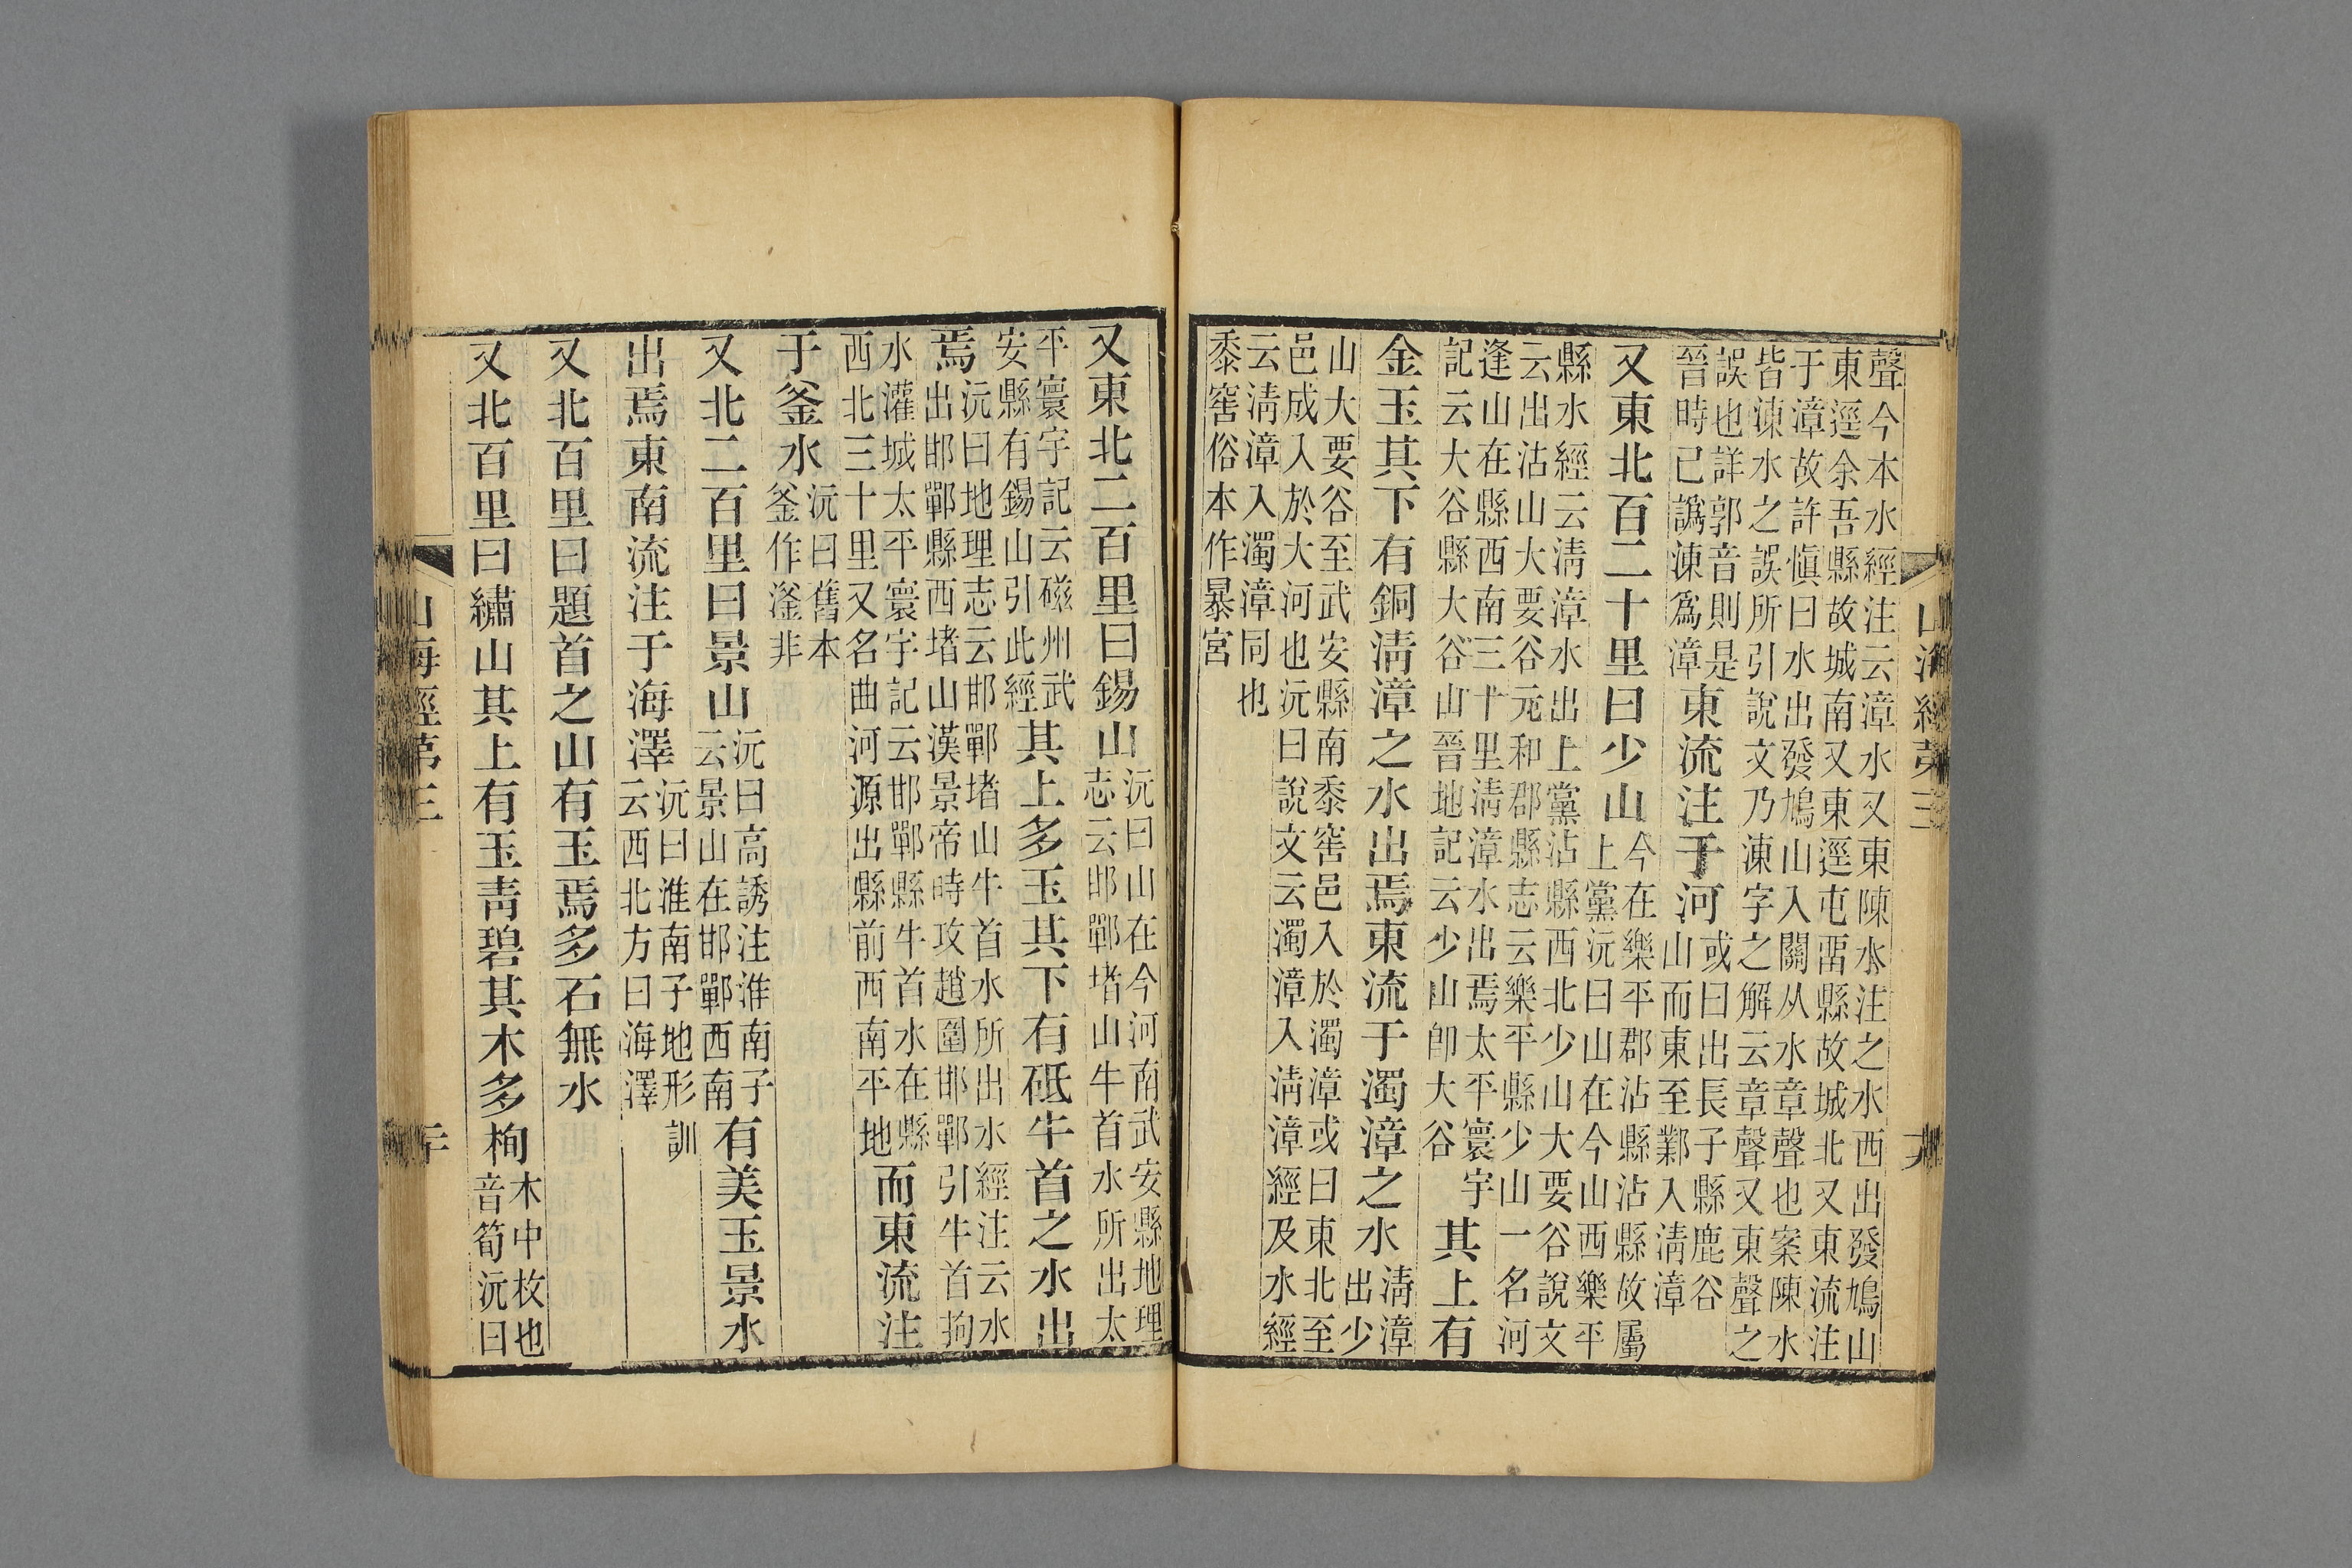 聲今本水經注云漳水又東陳水注之水西出發鳩山
東逕余吾縣故城南又東逕屯畱縣故城北又東流注
于漳故許慎曰水出發鳩山入關从水章聲也案陳水
皆涷水之誤所引說文乃涷字之解云章聲又東聲之
誤也詳郭音則是
晉時已譌涷爲漳
東流注于河
或曰出長子縣鹿谷
山而東至鄴入淸漳
又東北百二十里曰少山
今在樂平郡沾縣沾縣故屬
上黨沅曰山在今山西樂平
縣水經云淸漳水出上黨沾縣西北少山大要谷說文
云出沽山大要谷元和郡縣志云樂平縣少山一名河
逢山在縣西南三十里淸漳水出焉太平寰宇
記云大谷縣大谷山晉地記云少山卽大谷
其上有
金玉其下有銅淸漳之水出焉東流于濁漳之水
淸漳
出少
山大要谷至武安縣南黍窖邑入於濁漳或曰東北至
邑成入於大河也沅曰說文云濁漳入淸漳經及水經
云淸漳入濁漳同也
黍窖俗本作暴宮
又東北二百里曰錫山
沅曰山在今河南武安縣地理
志云邯鄲堵山牛首水所出太
平寰宇記云磁州武
安縣有錫山引此經
其上多玉其下有砥牛首之水出
焉
沅曰地理志云邯鄲堵山牛首水所出水經注云水
出邯鄲縣西堵山漢景帝時攻趙圍邯鄲引牛首拘
水灌城太平寰宇記云邯鄲縣牛首水在縣
西北三十里又名曲河源出縣前西南平地
而東流注
于釜水
沅曰舊本
釜作滏非
又北二百里曰景山
沅曰高誘注淮南子
云景山在邯鄲西南
有美玉景水
出焉東南流注于海澤
沅曰淮南子地形訓
云西北方曰海澤
又北百里曰題首之山有玉焉多石無水
又北百里曰繡山其上有玉靑碧其木多栒
木中枚也
音筍沅曰
山海經第三